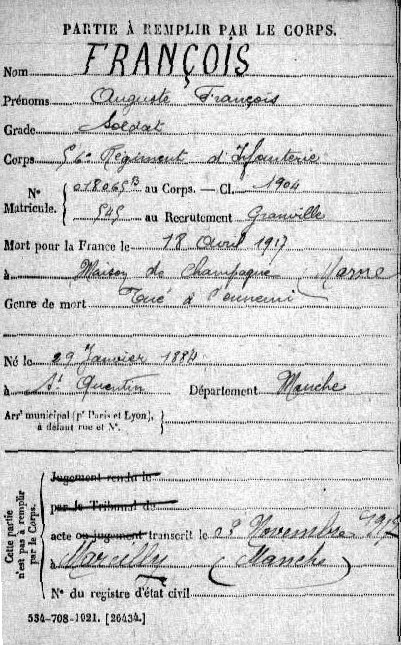 PARTIE À REMPLIR PAR LE CORPS.
Nom FRANÇOIS
Prénoms Auguste François
Grade Soldat
Corps 56e Régiment d'Infanterie
N° Matricule. { 018065B au Corps. — Cl. 1904
545 au Recrutement Granville
Mort pour la France le 18 Avril 1917
à Maison de Champagne (Marne
Genre de mort Tué à l'ennemi
Né le 29 Janvier 1884
à St Quentin Département Manche
Arrt municipal (pr Paris et Lyon), à défaut rue et N°. }
Cette partie n'est pas à remplir par le Corps.
Jugement rendu le
par le Tribunal de
acte ou jugement transcrit le Novembre
à Marcilly (Manche)
N° du registre d'état civil
534-708-1921. [26434.]